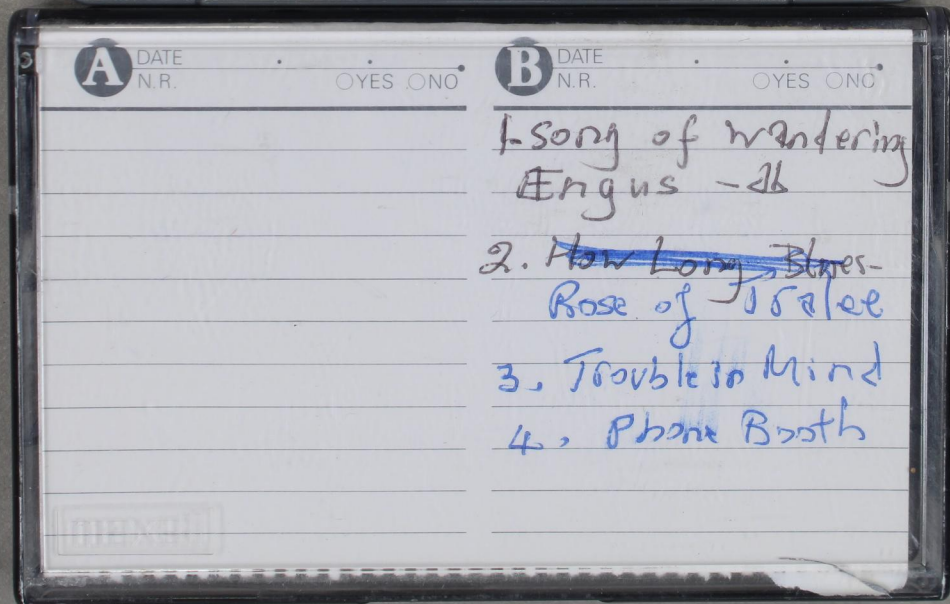 A DATE
N.R. YES NO
B DATE
N.R. YES NO
1-song of wandering
Engus - ab
2. How Long Blues-
Rose of Tralee
3. Trouble in Mind
4. Phone Booth
maxell